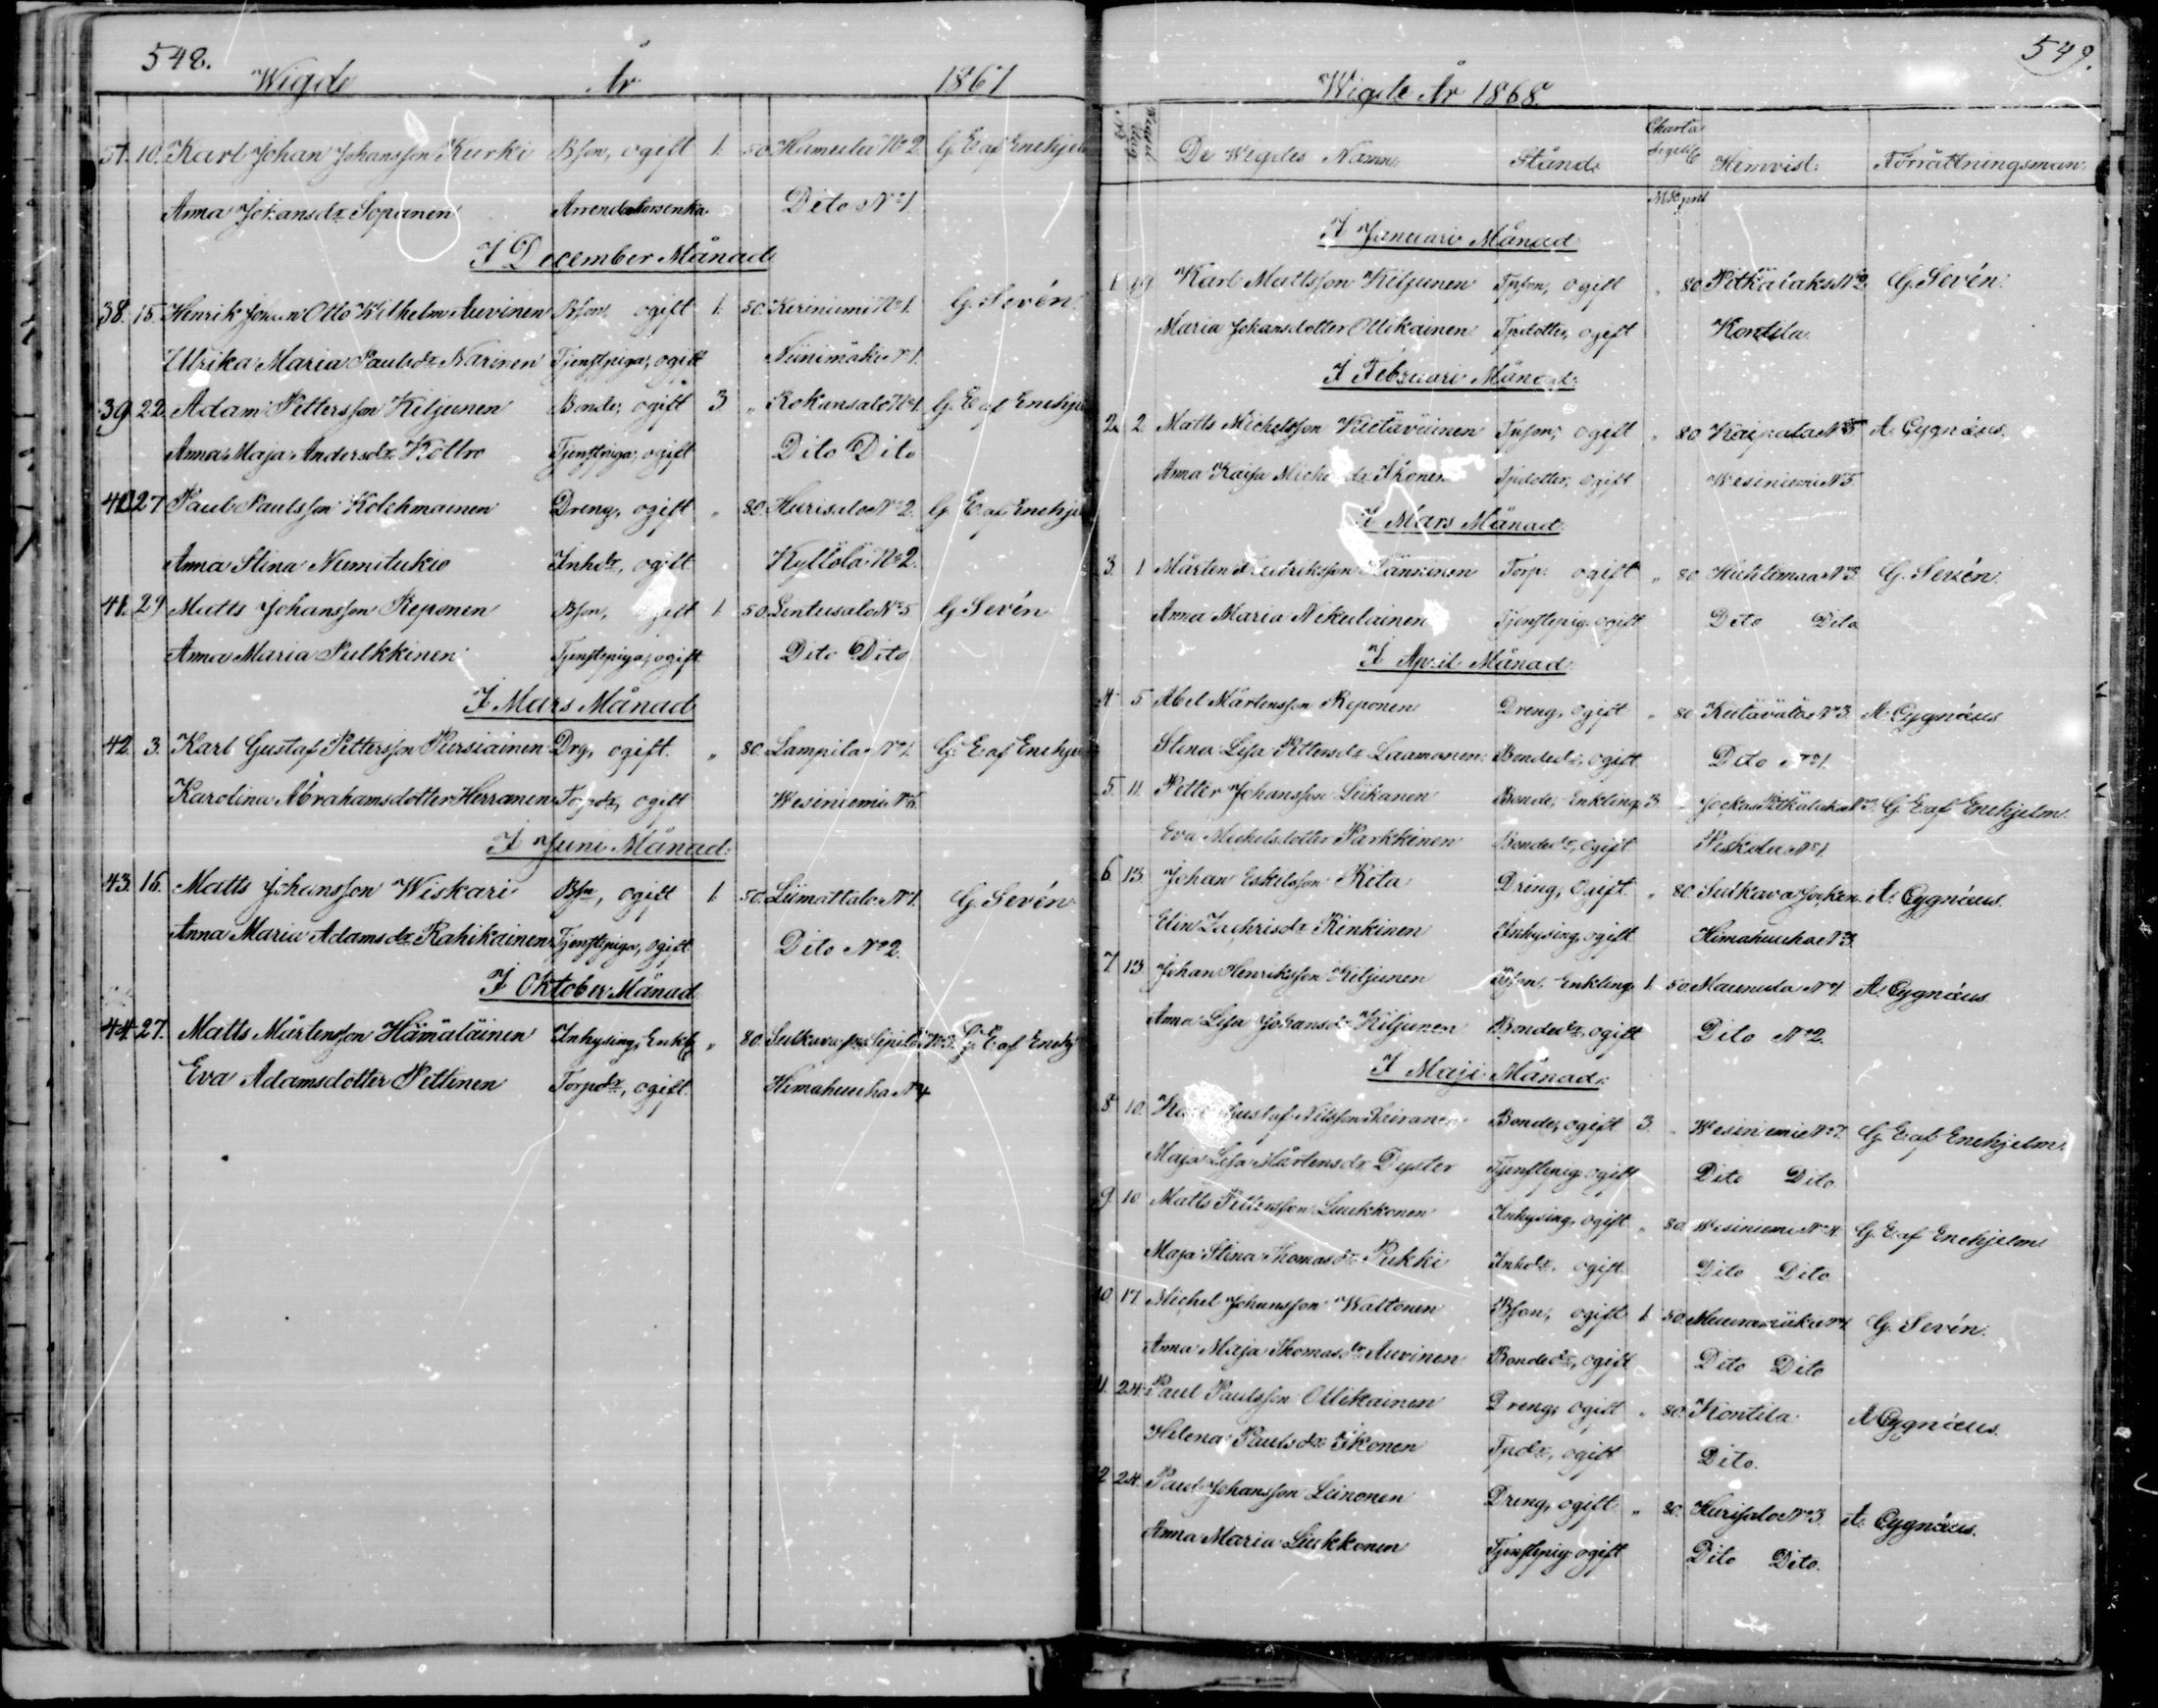 548.
Wigde År 1867
37. 10. Karl Johan Johansson Kurki Bson, ogift 1. 50. Hamula No 2. G. E af Enehjelm
Anna Johansdr Sopanen Arrendatorsenka Dito No 1
I December Månad
38. 15. Henrik Johan Otto Wilhelm Auvinen Bson, ogift 1. 50. Keriniemi No 1. G. Sevén.
Ulrika Maria Paulsdr Narinen Tjenstpiga, ogift Niinimäki No 1.
39. 22. Adam Pettersson Kiljunen Bonde, ogift 3 „ Rokansalo No 1. G. E af Enehjelm
Anna Maja Andersdr Kottro Tjenstpiga, ogift Dito Dito
40. 27 Paul Paulsson Kolehmainen Dreng, ogift „ 80. Hurisalo No 2. G. E af Enehjelm
Anna Stina Numitukio Inhdr, ogift Kyllölä No 2.
41. 29 Matts Johansson Reponen Bson, ogift 1. 50. Lintusalo No 5 G Sevén
Anna Maria Pulkkinen Tjenstepiga, ogift Dito Dito
I Mars Månad
42. 3. Karl Gustaf Pettersson Pursiainen Drg, ogift. „ 80. Lampila No 1. G. E af Enehjelm
Karolina Abrahamsdotter Herranen Torpdr, ogift Wesiniemi No 5.
I Juni Månad.
43. 16. Matts Johansson Wiskari Bsn, ogift 1. 50. Liimattala No 1. G. Sevén
Anna Maria Adamsdr Rahikainen Tjenstepiga, ogift Dito No 2.
I Oktober Månad
44. 27. Matts Mårtensson Hämäläinen Inhysing, Enkl „ 80. Sulkava G. E af Enehj
Eva Adamsdotter Pettinen Torpdr, ogift. Kimahuuha No 4
549.
Wigde År 1868
De Wigdes Namn. Stånd. Charta Sigill. Hemvist. Förrättningsman.
Mk pni
I Januari Månad
1. 19 Karl Mattsson Kiljunen Tpson, ogift „ 80 Pitkälaks No 2. G. Sevén.
Maria Johansdotter Ollikainen Tpdotter, ogift Kontila.
I Februari Månad.
2. 2 Matts Michelsson Kietäväinen Tpson, ogift „ 80 Kaipala No 3 A. Cygnæus.
Anna Kaisa Ikonen Tpdotter, ogift Wesiniemi No 5.
I Mars Månad.
3. 1 Mårten Fredriksson Hänninen Torp. ogift „ 80 Huhtimaa No 3. G. Sevén.
Anna Maria Nikulainen Tjenstepig. ogift Dito Dito
I April Månad.
4 5 Abel Mårtensson Reponen Dreng, ogift „ 80 Kietävälä No 3. A. Cygnæus
Stina Lisa Pettersdr Laamanen Bondedr, ogift Dito No 1.
5. 11. Petter Johansson Liikanen Bonde, Enkling 3. „ Jockas Pitkälaks No 3. G. E af Enehjelm.
Eva Michelsdotter Parkkinen Bondedr, ogift Piskola No 1.
6 13. Johan Eskelsson Kita Dräng, Ogift „ 80. Sulkava A. Cygnæus.
Elin Zachrisdr Kinkinen Inhysing, ogift Kimahuuha No 3.
7 13. Johan Henriksson Kiljunen Bson, Enkling 1. 50 Maunula No 4 A. Cygnæus.
Anna Lisa Johansdr Kiljunen Bondedr, ogift Dito No 2.
I Maji Månad.
8 10. Karl Gustaf Nilsson Bonde, ogift 3. „ Wesiniemi No 7. G. E af Enehjelm.
Maja Lisa Mårtensdr Dyster Tjenstepig. ogift Dito Dito
9 10 Matts Pettersson Luukkonen Inhysing, ogift „ 80. Wesiniemi No 4. G. E af Enehjelm
Maja Stina Thomasdr Pukki Inhdr, ogift Dito Dito
10. 17. Michel Johansson Waltonen Bson, ogift 1. 50. Muuramäki No 4 G. Sevén.
Anna Maja Thomasdr Auvinen Bondedr, ogift Dito Dito
11. 24. Paul Paulsson Ollikainen Dreng, ogift „ 80. Kontila. A Cygnæus.
Helena Paulsdr Ikonen Tpdr, ogift Dito.
12 24. Paul Johansson Leinonen Dreng, ogift „ 80. Hurisalo No 3. A. Cygnæus.
Anna Maria Liukkonen Tjenstepig. ogift Dito Dito.